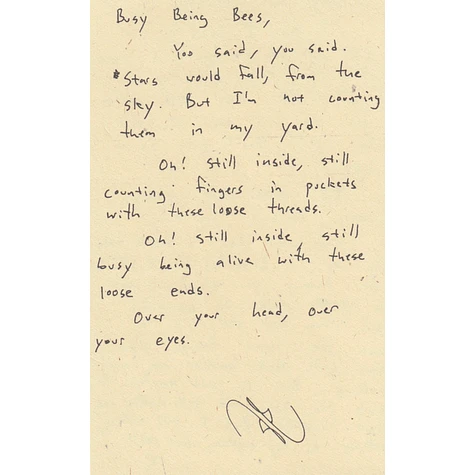 Busy Being Bees,
You said, you said.
*Stars would fall, from the
sky. But I'm not counting
them in my yard.
Oh! still inside, still
counting fingers in pockets
with these loose threads.
Oh! still inside, still
busy being alive with these
loose ends.
Over your head, over
your eyes.